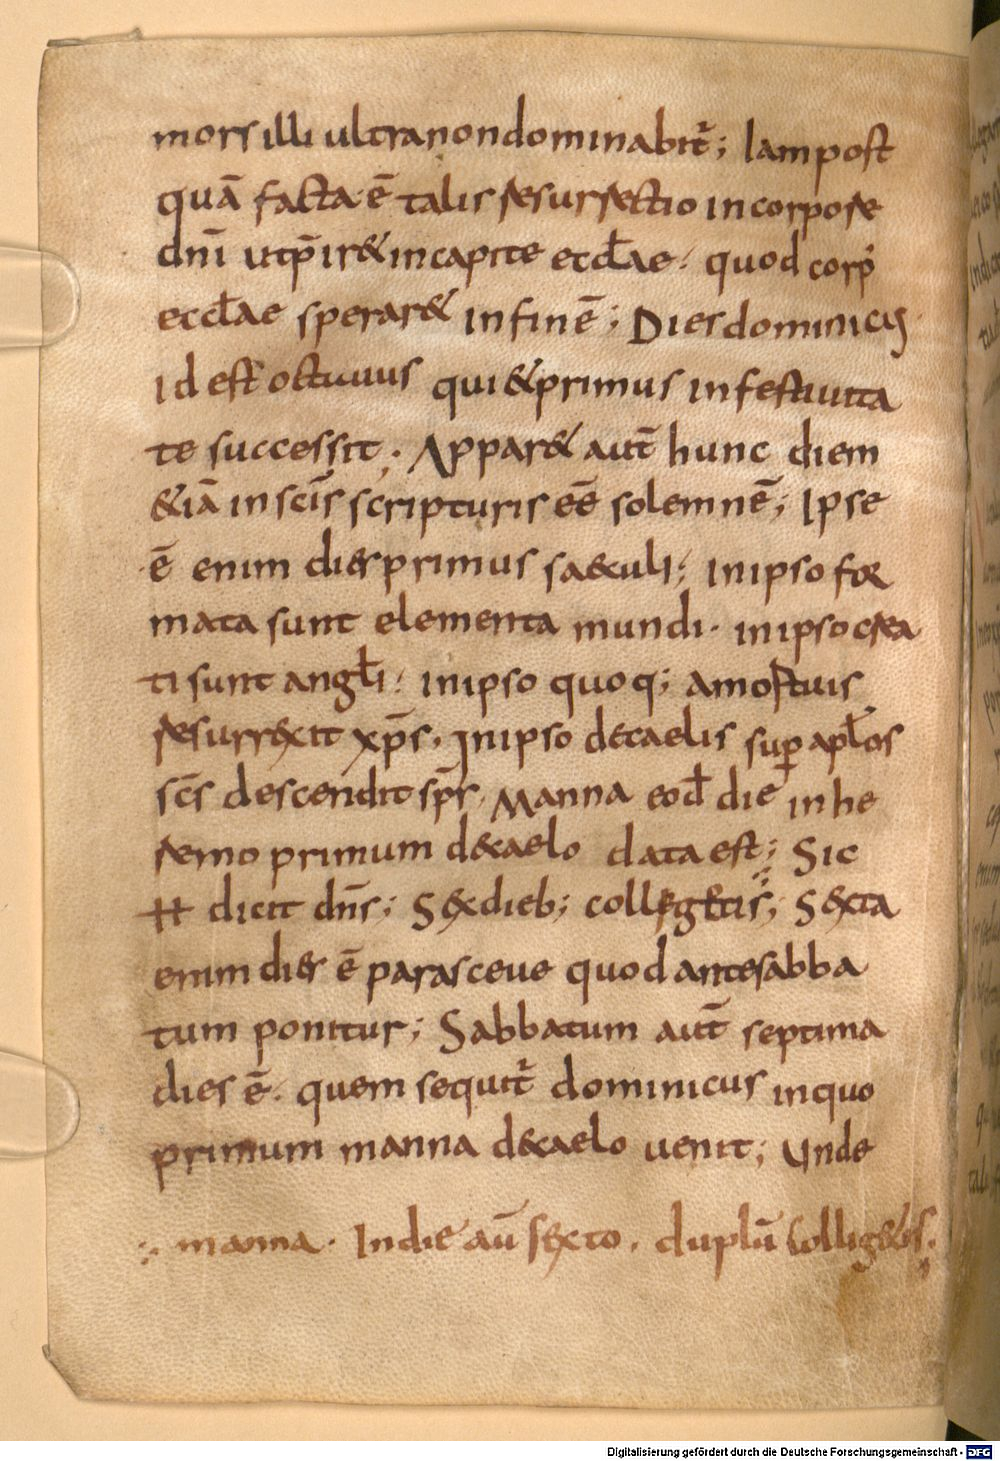 mors illi ultra non dominabit᷑; Iam post
quā facta ē talis resurrectio in corpore
dnī ut p̄ir& in capite eccłae. quod corp᷒
eccłae sperar& in finē; Dies dominicus
id est octavus qui & primus in festivita
te successit; Appar& aut̄ hunc diem
&iā in scīs scripturis eē solemnē; Ipse
ē enim dies primus saeculi; in ipso for
mata sunt elementa mundi. in ipso crea
ti sunt angłi. in ipso quoq; amortuis
resurrexit xp̄s. In ipso de caelis sup̱ apłos
sc̄s descendit sp̄s. Manna eod̄ die in he
remo primum de caelo data est; Sic
H dicit dn̄s; Sex dieb; collegetis; Sexta
enim dies ē parasceve quod ante sabba
tum ponitur; Sabbatum aut̄ septima
dies ē. quem sequit᷑ dominicus in quo
primum manna de caelo venit; Unde
manna. In die aū sexto. duplū collig&is.
Digitalisierung gefördert durch die Deutsche Forschungsgemeinschaft - DFG